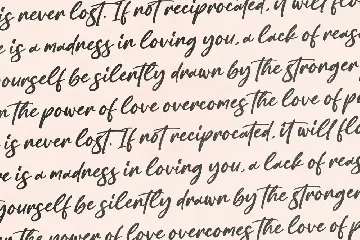 is never lost. If not reciprocated, it will flo
e is a madness in loving you, a lack of reas
yourself be silently drawn by the stronger
n the power of love overcomes the love of po
is never lost. If not reciprocated, it will flo
re is a madness in loving you, a lack of reas
yourself be silently drawn by the stronger
n the power of love overcomes the love of p